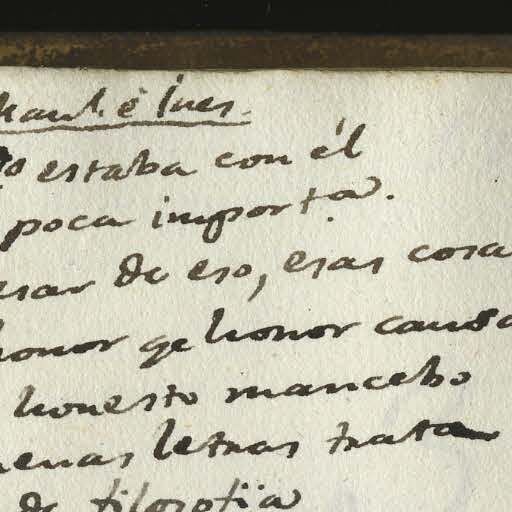 é Ines.
estaba con él
poca importa.
esar de eso, esas cosa
honor qe honor causa
honesto mancebo
uenas letras trata
de filosofia